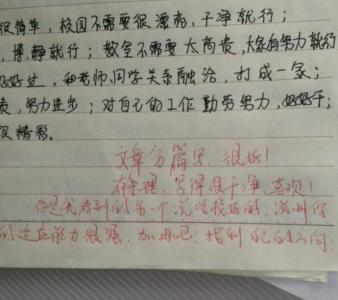 很简单，校园不需要很漂亮，干净就行；
，博静就行；教室不需要太高贵，大家有努力就行
好好过，和老师同学关系融洽，打成一家；
责，努力进步；对自己的工作勤劳努力，好好干；
很精彩。
文章分篇写，很好！
有条理，写得很干净，喜欢！
你是我看到的第一个说学校好的，说明你
的适应能力很强，加油吧！胜利的方向：